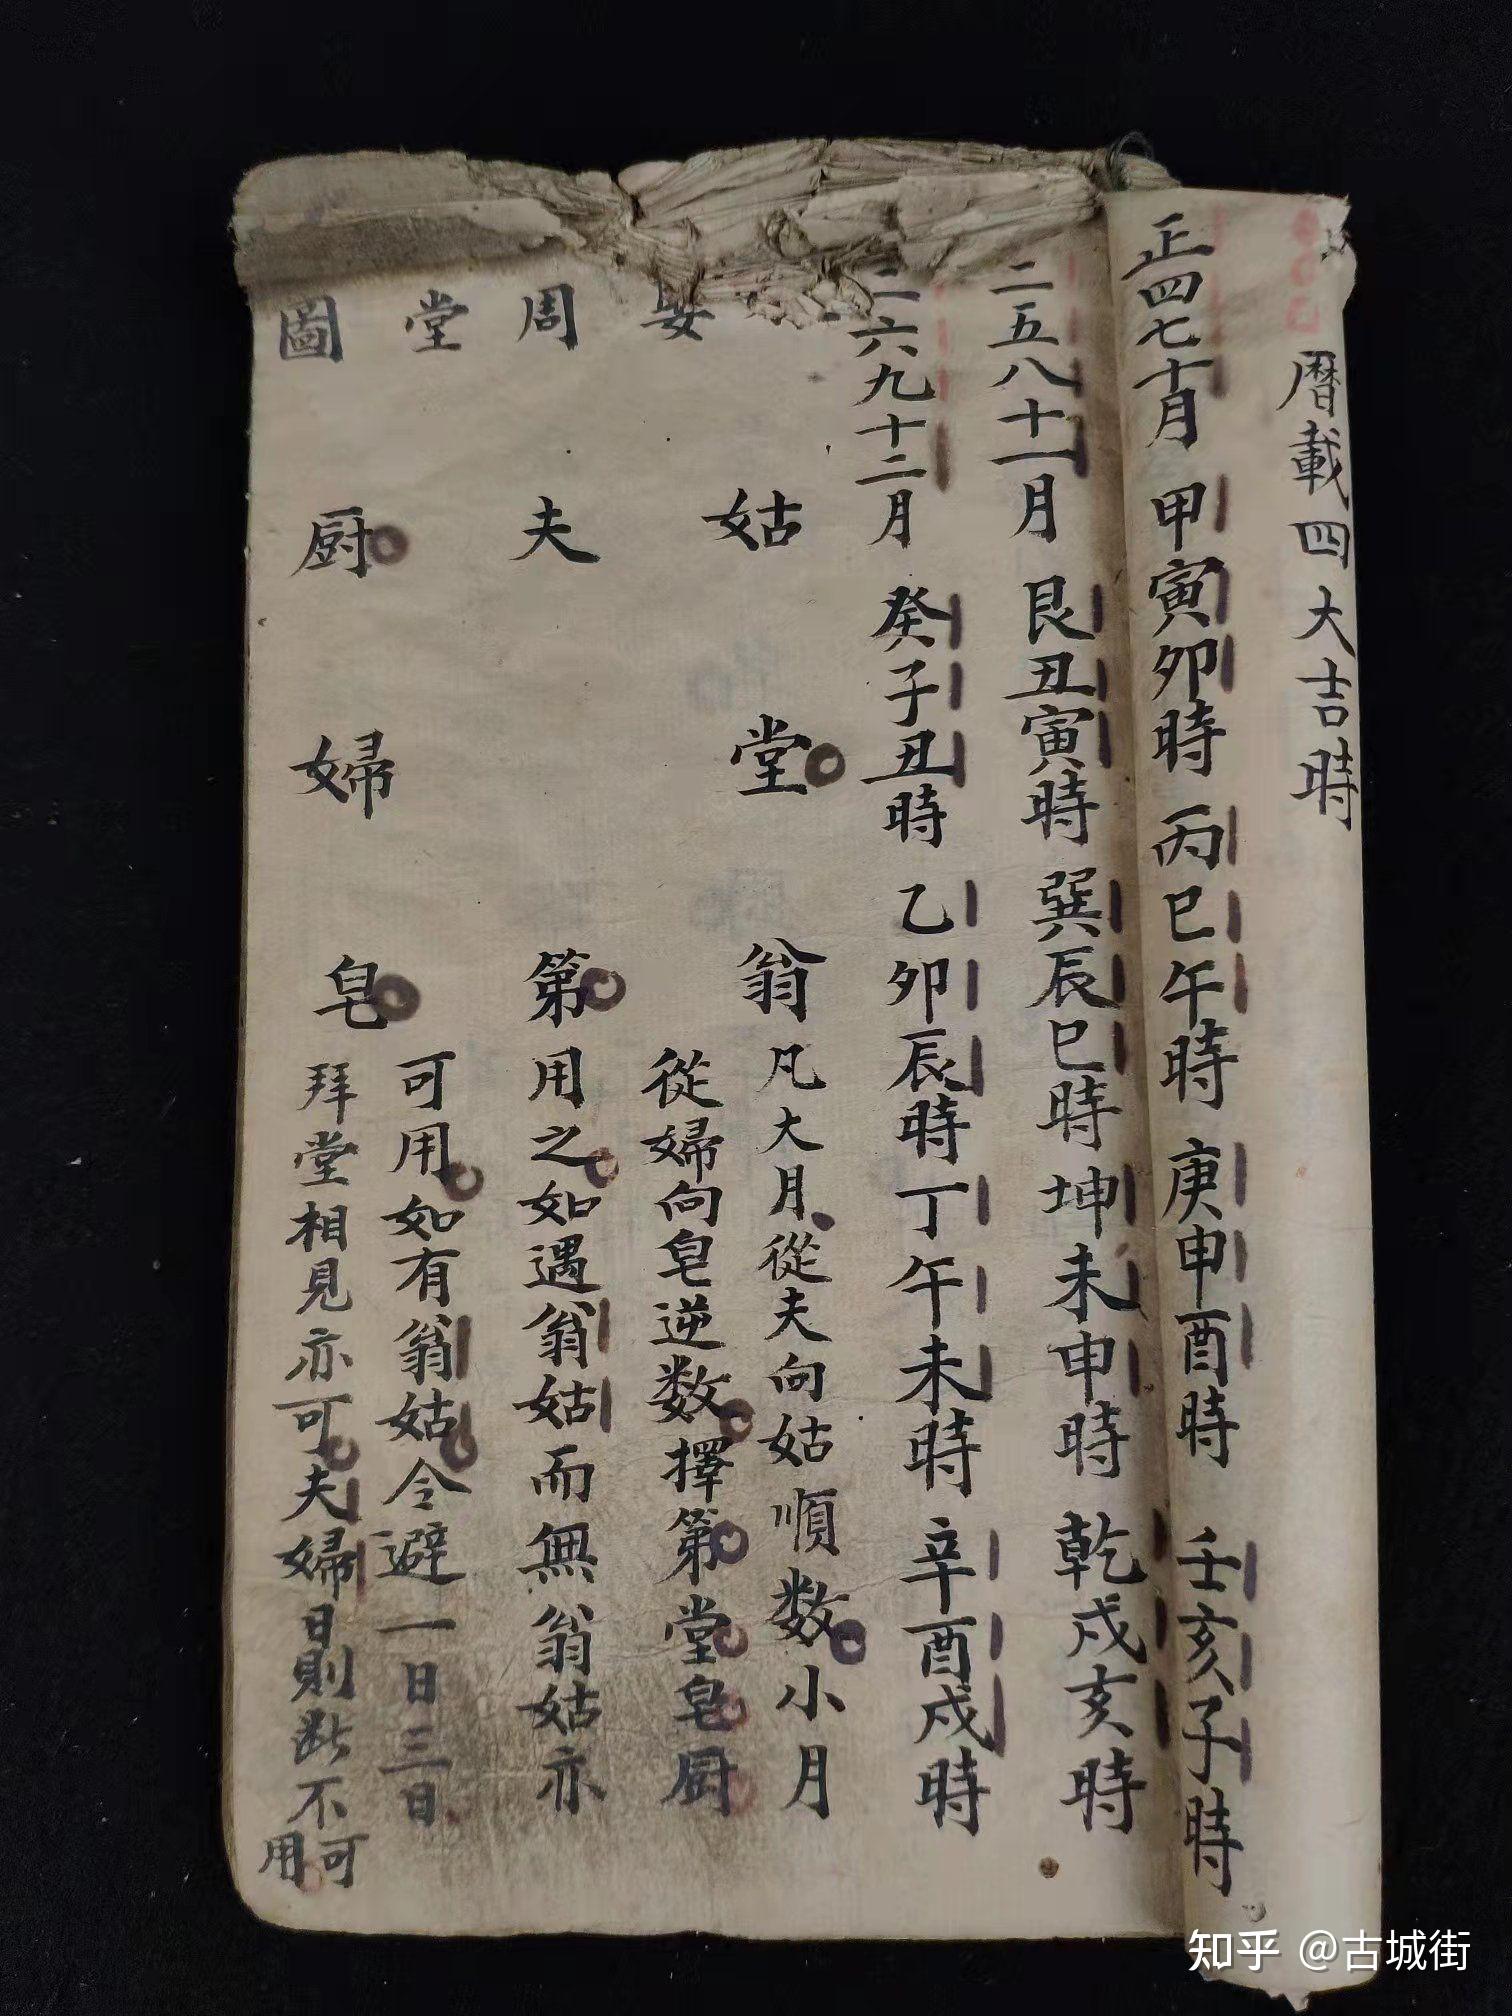 曆載四大吉時
正四七十月 甲寅卯時 丙巳午時 庚申酉時 壬亥子時
二五八十一月 艮丑寅時 巽辰巳時 坤未申時 乾戌亥時
六九十二月 癸子丑時 乙卯辰時 丁午未時 辛酉戌時
娶周堂圖
姑 夫 厨
堂 婦
翁 第 皂
凡大月從夫向姑順数小月
從婦向皂逆数擇第堂皂厨
用之如遇翁姑而無翁姑亦
可用如有翁姑令避一日三日
拜堂相見亦可夫婦日則断不可用
知乎 @古城街